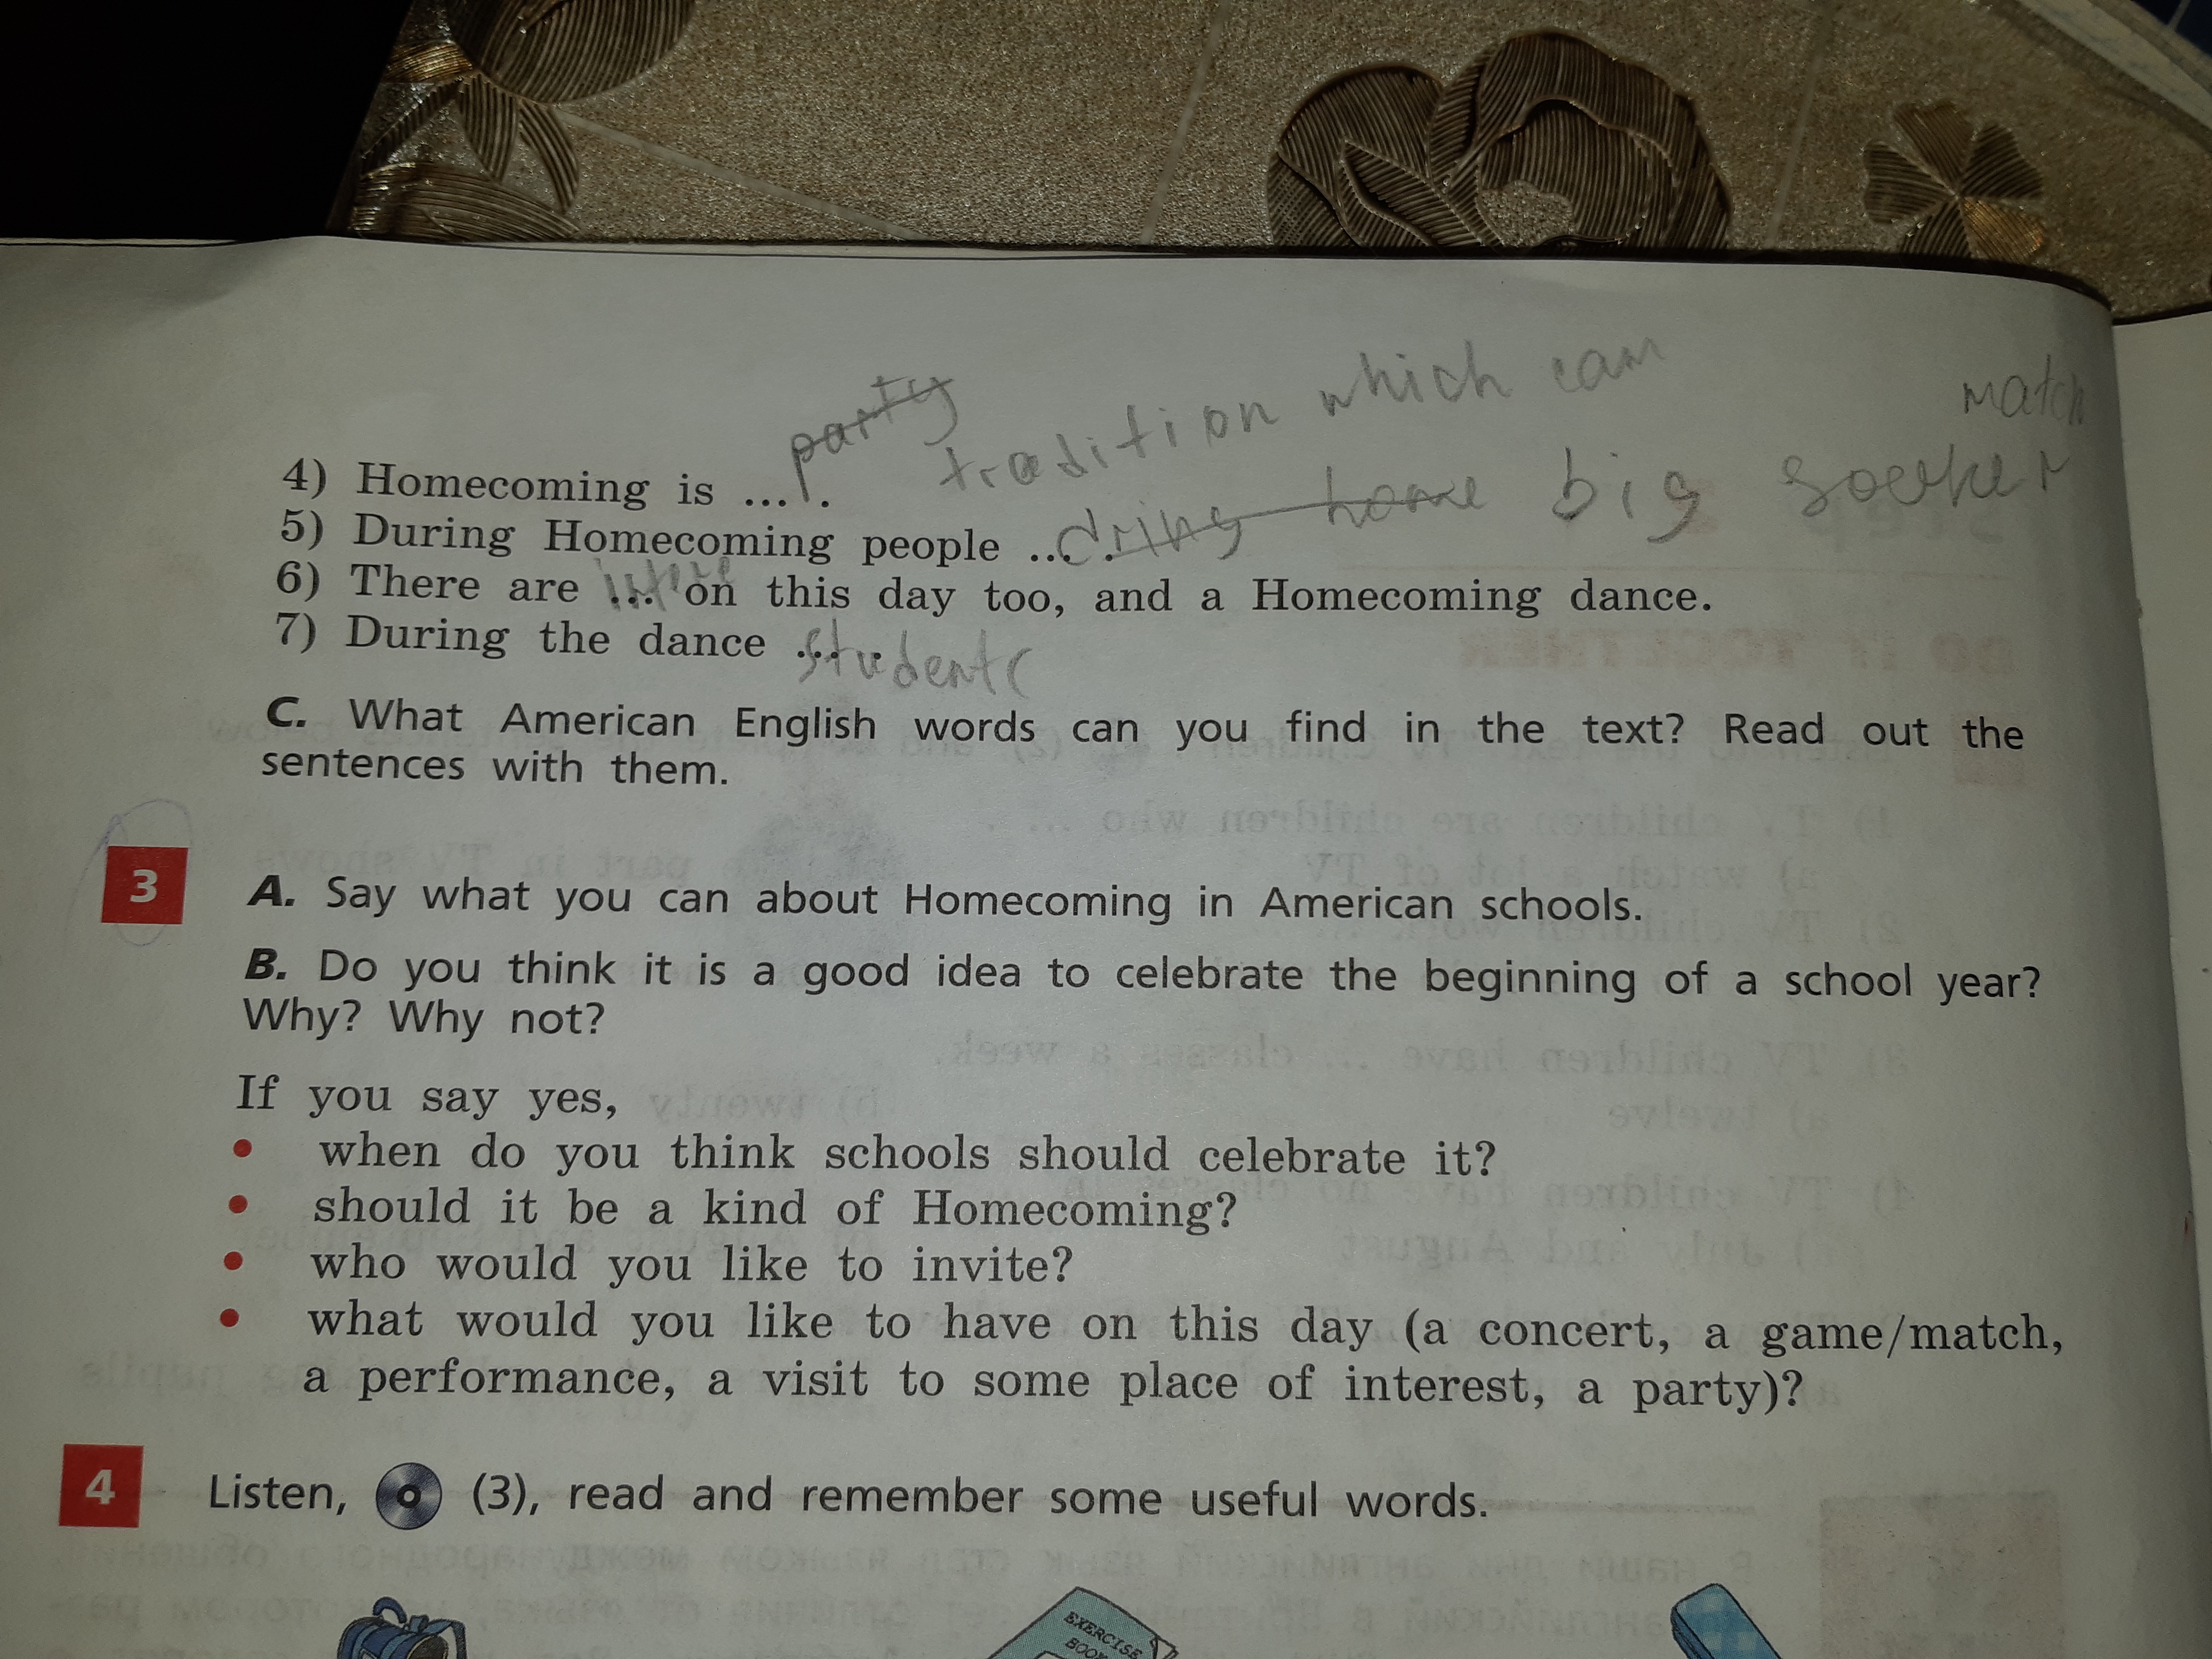 party
tradition which can
match
4) Homecoming is ... .
5) During Homecoming people ... .
dring home big
6) There are ... on this day too, and a Homecoming dance.
7) During the dance ... .
students
C. What American English words can you find in the text? Read out the
sentences with them.
3
A. Say what you can about Homecoming in American schools.
B. Do you think it is a good idea to celebrate the beginning of a school year?
Why? Why not?
If you say yes,
• when do you think schools should celebrate it?
• should it be a kind of Homecoming?
• who would you like to invite?
• what would you like to have on this day (a concert, a game/match,
a performance, a visit to some place of interest, a party)?
4
Listen, (3), read and remember some useful words.
EXERCISE
BOOK